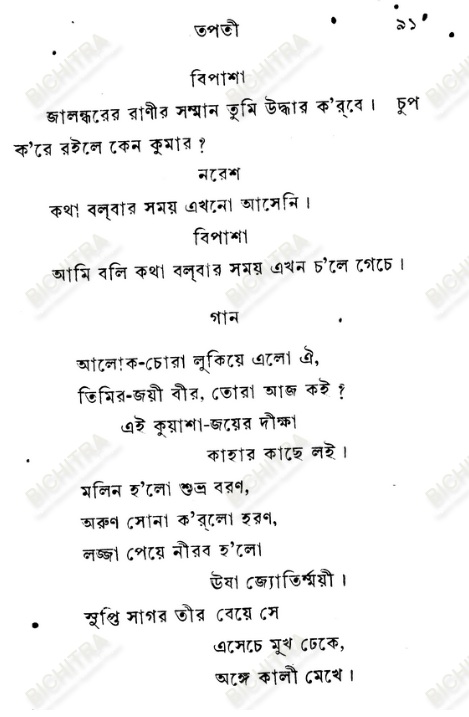 তপতী ৯১
বিপাশা
জালন্ধরের রাণীর সম্মান তুমি উদ্ধার ক'র্‌বে। চুপ
ক'রে রইলে কেন কুমার?
নরেশ
কথা বল্‌বার সময় এখনো আসেনি।
বিপাশা
আমি বলি কথা বল্‌বার সময় এখন চ'লে গেচে।
গান
আলোক-চোরা লুকিয়ে এলো ঐ,
তিমির-জয়ী বীর, তোরা আজ কই?
এই কুয়াশা-জয়ের দীক্ষা
কাহার কাছে লই।
মলিন হ'লো শুভ্র বরণ,
অরুণ সোনা ক'র্‌লো হরণ,
লজ্জা পেয়ে নীরব হ'লো
ঊষা জ্যোতির্ম্ময়ী।
সুপ্তি সাগর তীর বেয়ে সে
এসেচে মুখ ঢেকে,
অঙ্গে কালী মেখে।
BICHITRA
BICHITRA
BICHITRA
BICHITRA
BICHITRA
BICHITRA
BICHITRA
BICHITRA
BICHITRA